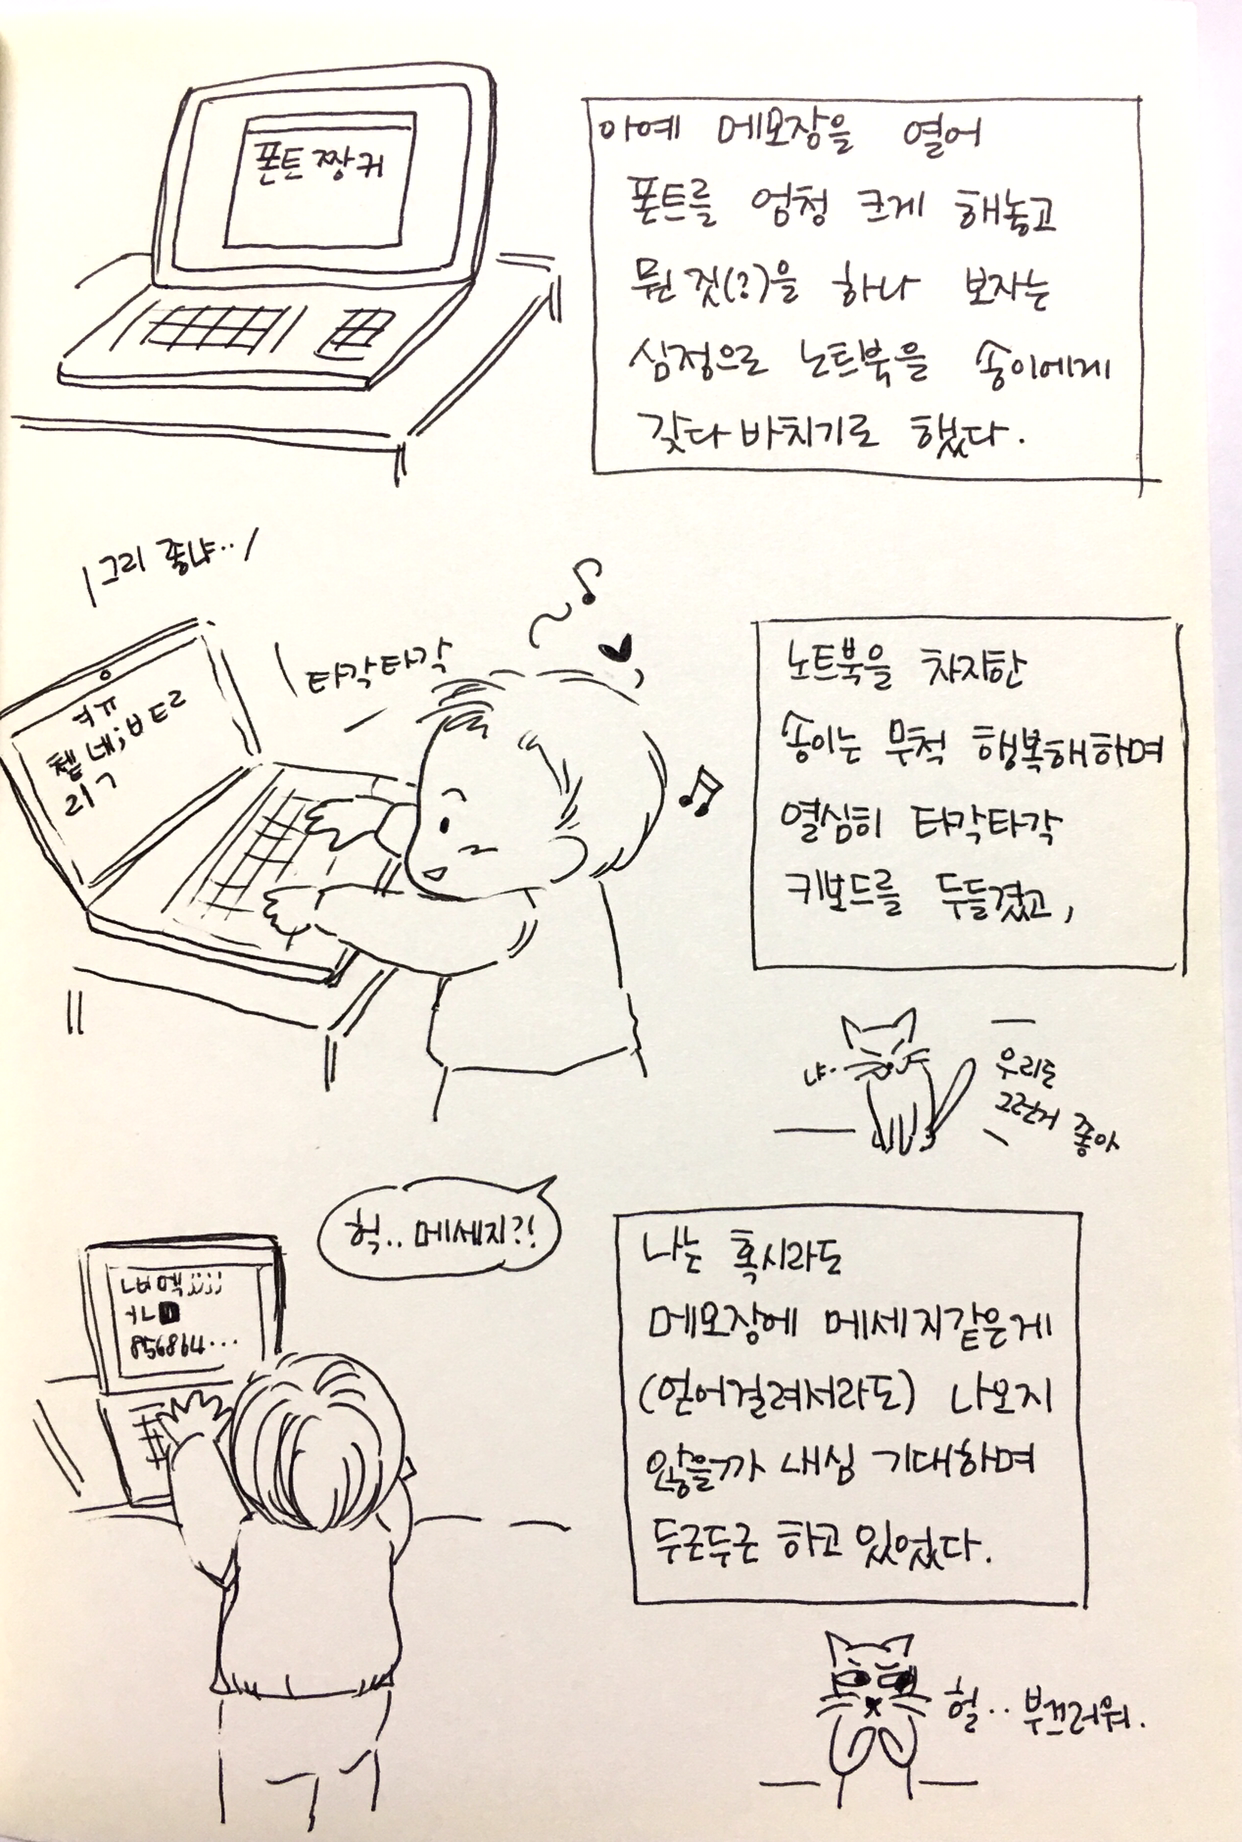 폰트 짱커
아예 메모장을 열어
폰트를 엄청 크게 해놓고
뭔 짓(?)을 하나 보자는
심정으로 노트북을 송이에게
갖다 바치기로 했다.
그리 좋냐..
타각타각
ㅕㅠ
쳅네;ㅂㅌㄹ
리ㄱ
노트북을 차지한
송이는 무척 행복해하며
열심히 타각타각
키보드를 두들겼고,
냐..
우리도
그런거 좋아
헉.. 메세지?!
856864...
나는 혹시라도
메모장에 메세지같은게
(얻어걸려서라도) 나오지
않을까 내심 기대하며
두근두근 하고 있었다.
헐.. 부끄러워.